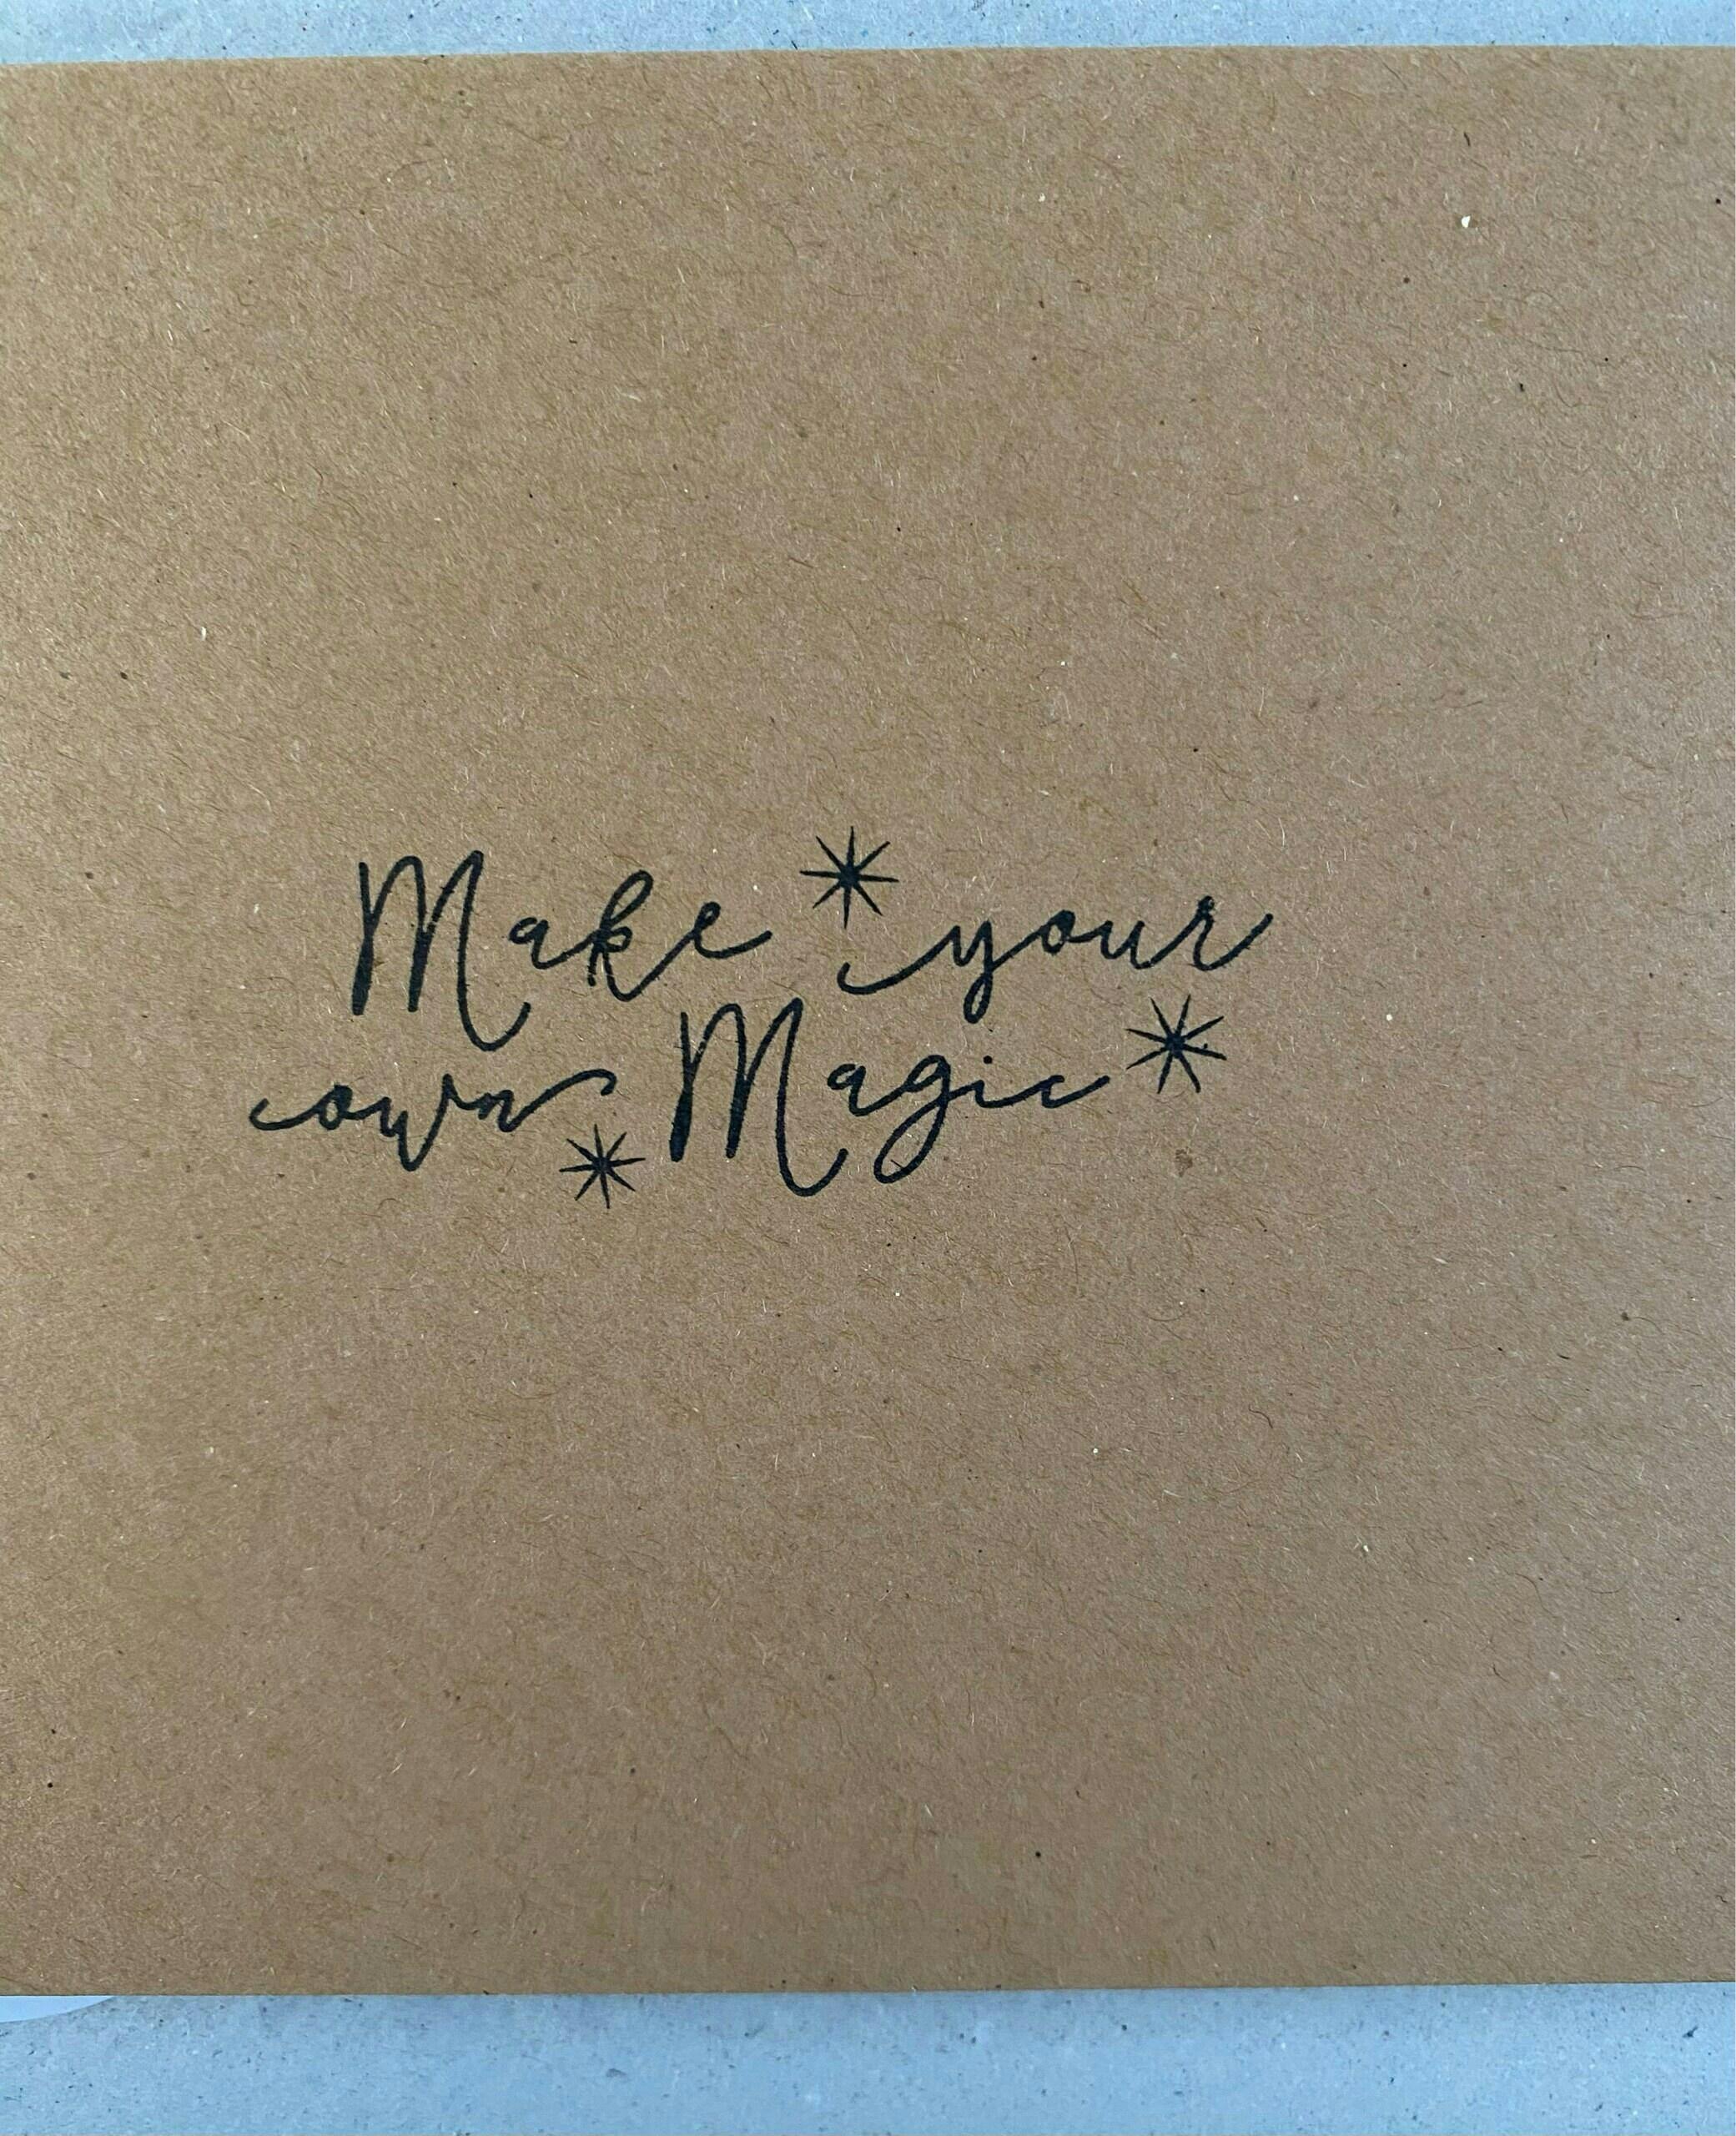 Make your
own Magic